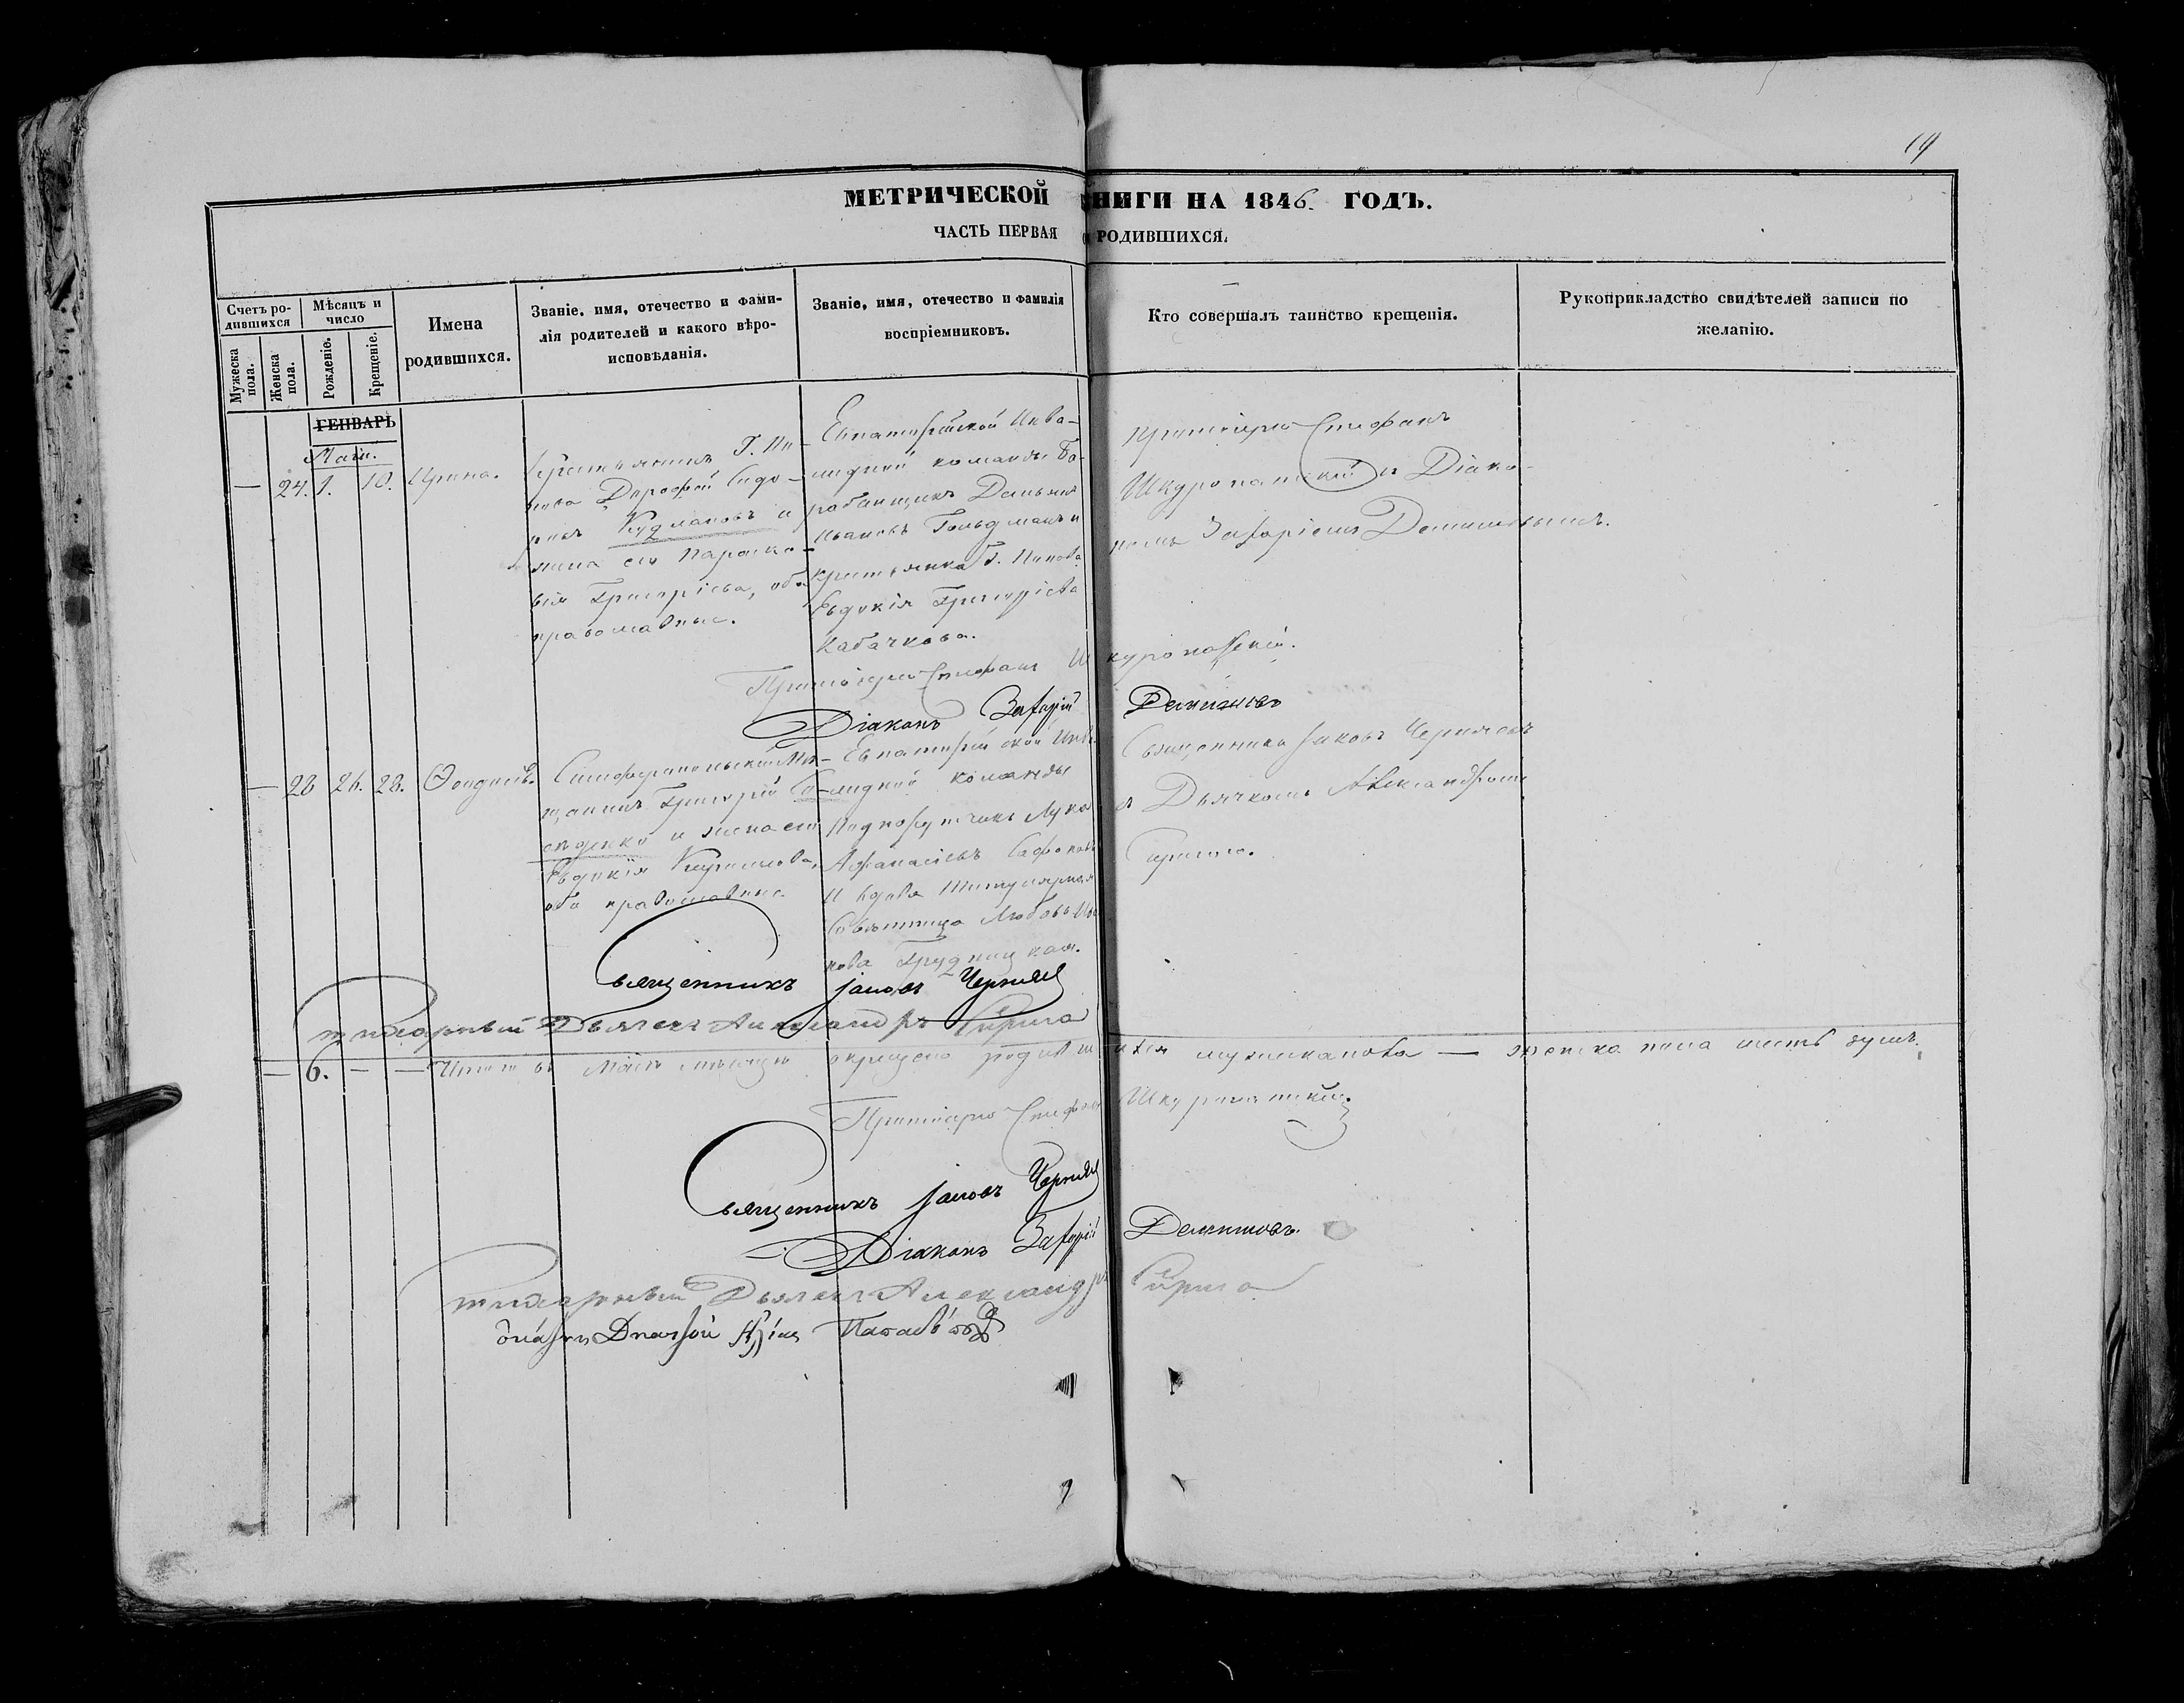 19
МЕТРИЧЕСКОЙ КНИГИ НА 1846. ГОДЪ.
ЧАСТЬ ПЕРВАЯ О РОДИВШИХСЯ.
Счетъ ро-
дившихся
Мужеска пола.
Женска пола.
Мѣсяцъ и
число
Рожденіе.
Крещеніе.
Имена
родившихся.
Званіе, имя, отечество и фами-
лія родителей и какого вѣро-
исповѣданія.
Званіе, имя, отечество и фамилія
воспріемниковъ.
Кто совершалъ таинство крещенія.
Рукоприкладство свидѣтелей записи по
желанію.
ГЕНВАРЬ
Маій.
— 24. 1. 10. Ирина.
Крестьянинъ Г. По
пова Дорофей Сидо-
ровъ Кудлаковъ и
жена его Параске-
вія Григоріева, оба
православные.
Евпаторійской Инва-
лидной команды Ба-
рабанщикъ Демьянъ
Ивановъ Гольдманъ и
крестьянка Г. Попова
Евдокія Григоріева
Кабачкова.
Протоіерей Стефанъ
Шкуропатскій съ Діако-
номъ Захаріемъ Демишевымъ.
Протоіерей Стефанъ Шкуропатскій.
Діаконъ Захарій
— 28 26. 28. Ѳеодосія.
Симферопольскій Мѣ-
щанинъ Григорій
и жена его
Евдокія Кирилова,
оба православные.
Евпаторійской Инва-
лидной команды
Подпоручикъ Лука
Афанасіевъ Сафоновъ
и вдова Титулярная
Совѣтница Любовь Ива
нова Грудницкая.
Священникъ Іаковъ Чернявс
съ Дьячкомъ Александромъ
Гирита.
Священникъ Іаковъ Чернявс
Дьячекъ Александръ Гирита
— 6. — — Итого въ Маіѣ мѣсяцѣ окрещено родившихся мужеска пола — женска пола шесть душъ.
Протоіерей Стефанъ Шкуропатскій.
Священникъ Іаковъ Чернявс
Діаконъ Захарій
Дьячекъ Александръ Гирита